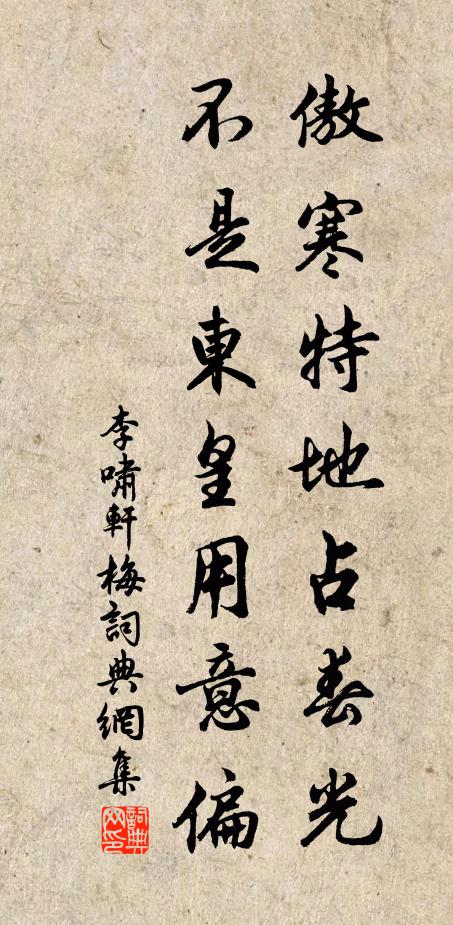 傲寒特地占春光
不是東皇用意偏
李嘯軒梅詞典網集
詞典網印